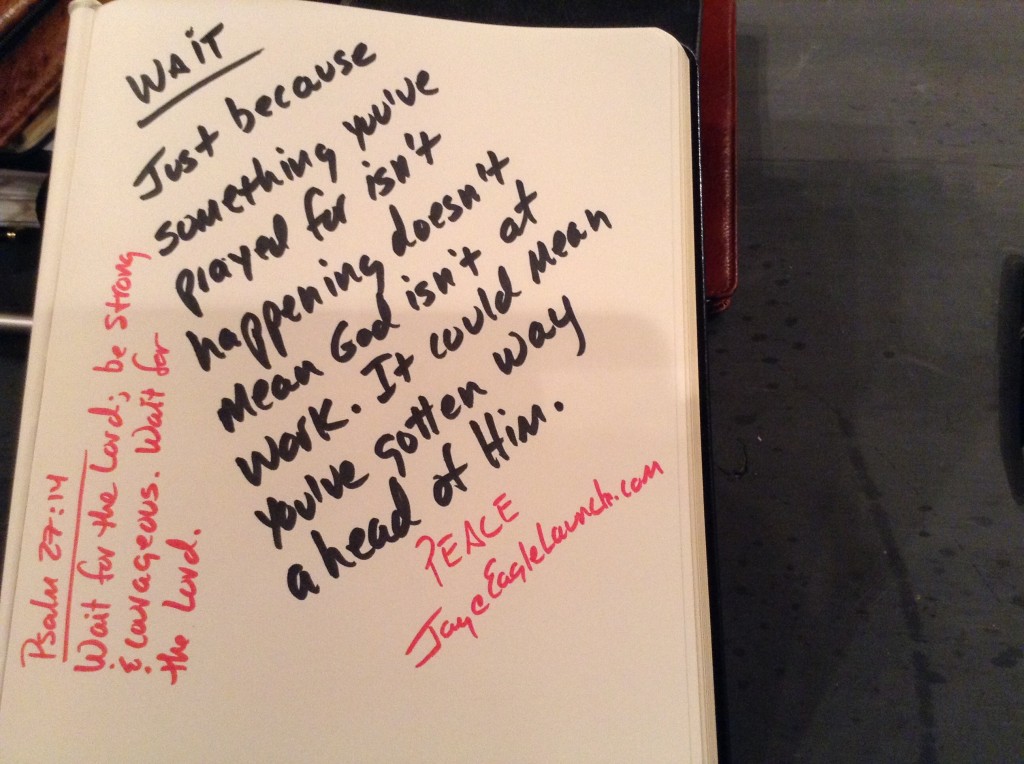 WAIT
Just because
something you've
prayed for isn't
happening doesn't
mean God isn't at
work. It could mean
you've gotten way
ahead of Him.
PEACE
Jay@EagleLaunch.com
Psalm 27:14
Wait for the Lord; be strong
& courageous. Wait for
the Lord.